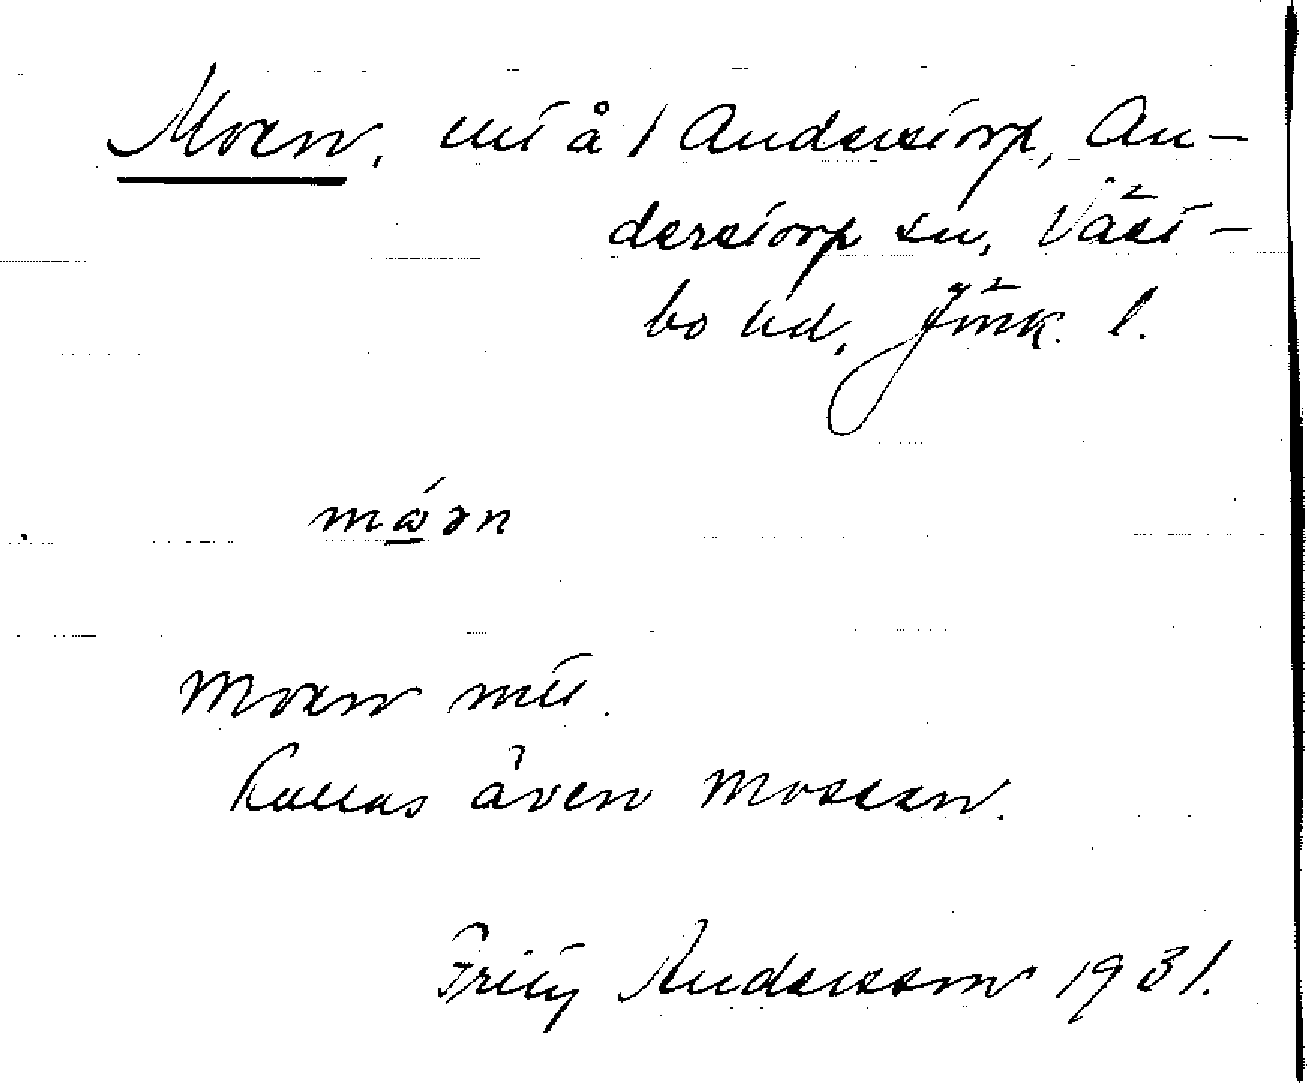 Moen, mt å 1 Anderstorp, An-
derstorp sn, Väst-
bo hd, Jönk. l.
Moen
Kallas även Mossen.
Fritz Andersson 1931.